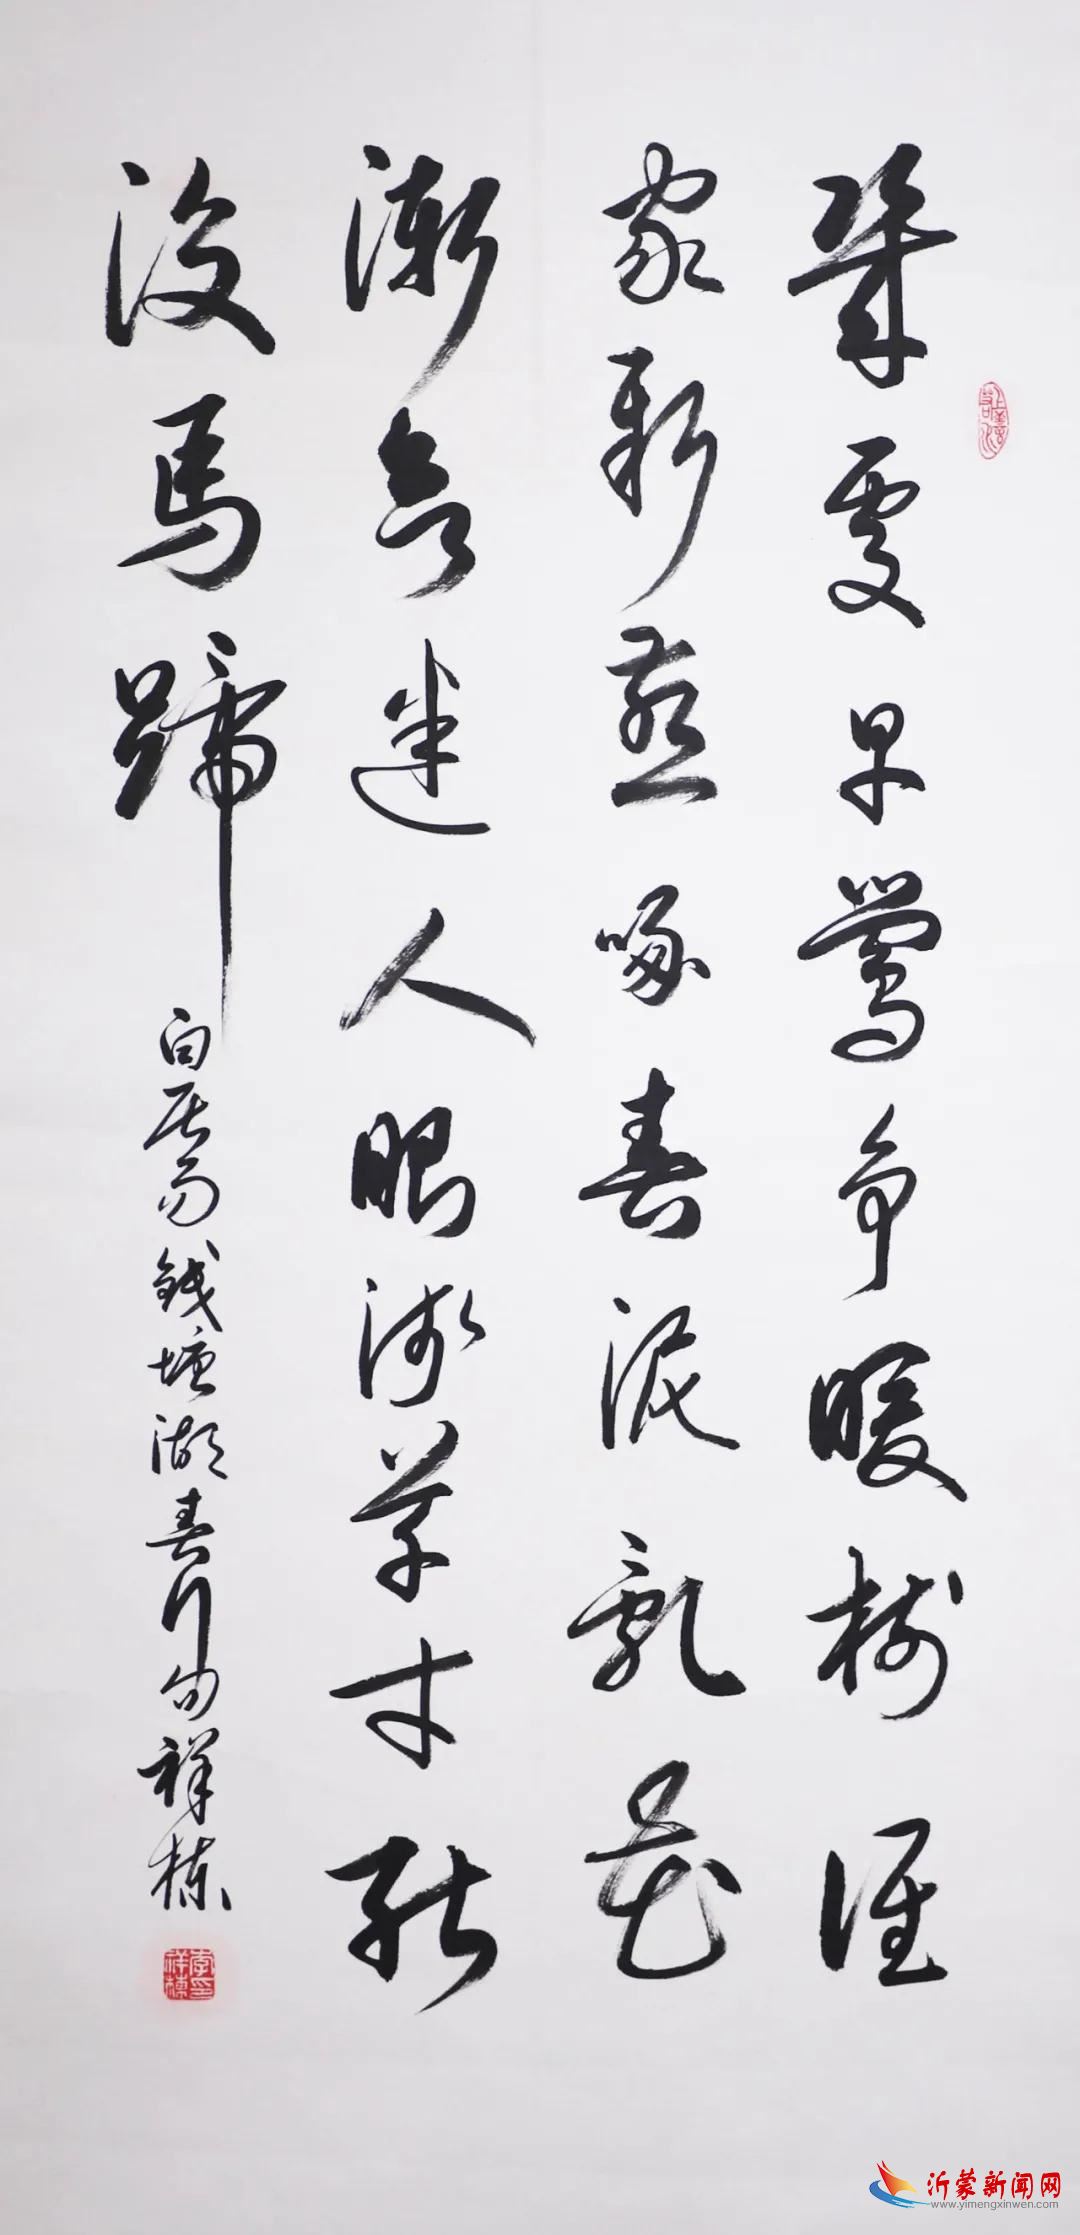 上善若水
幾處早鶯争暖樹誰
家新燕啄春泥亂花
漸欲迷人眼淺草才能
没馬蹄
白居易錢塘湖春行句祥棟
李印祥棟
沂蒙新闻网
www.yimengxinwen.com